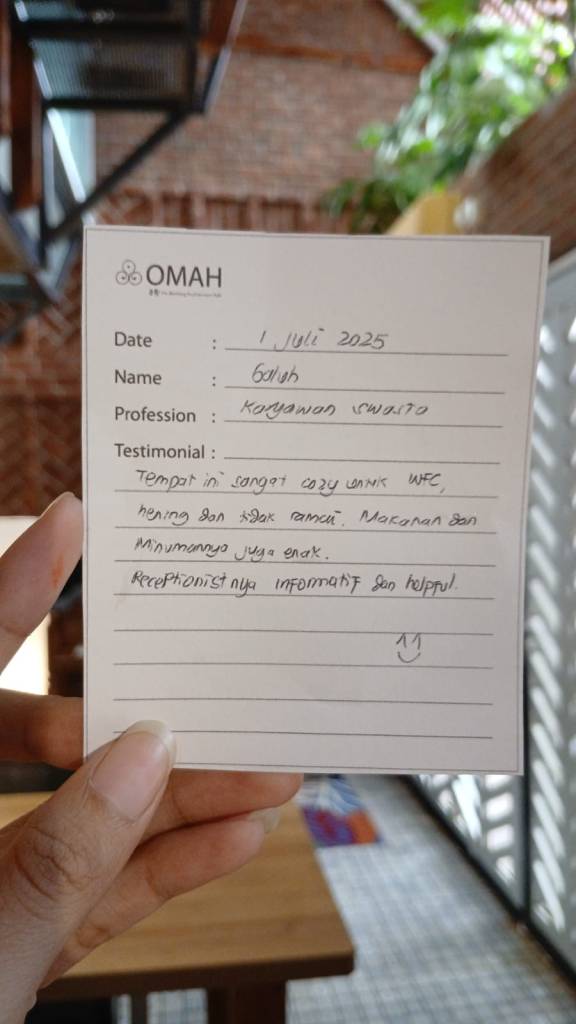 OMAH
Date : 1 Juli 2025
Name : Galuh
Profession : Karyawan swasta
Testimonial :
Tempat ini sangat cozy untuk WFC,
hening dan tidak ramai. Makanan dan
Minumannya juga enak.
Receptionistnya informatif dan helpful.